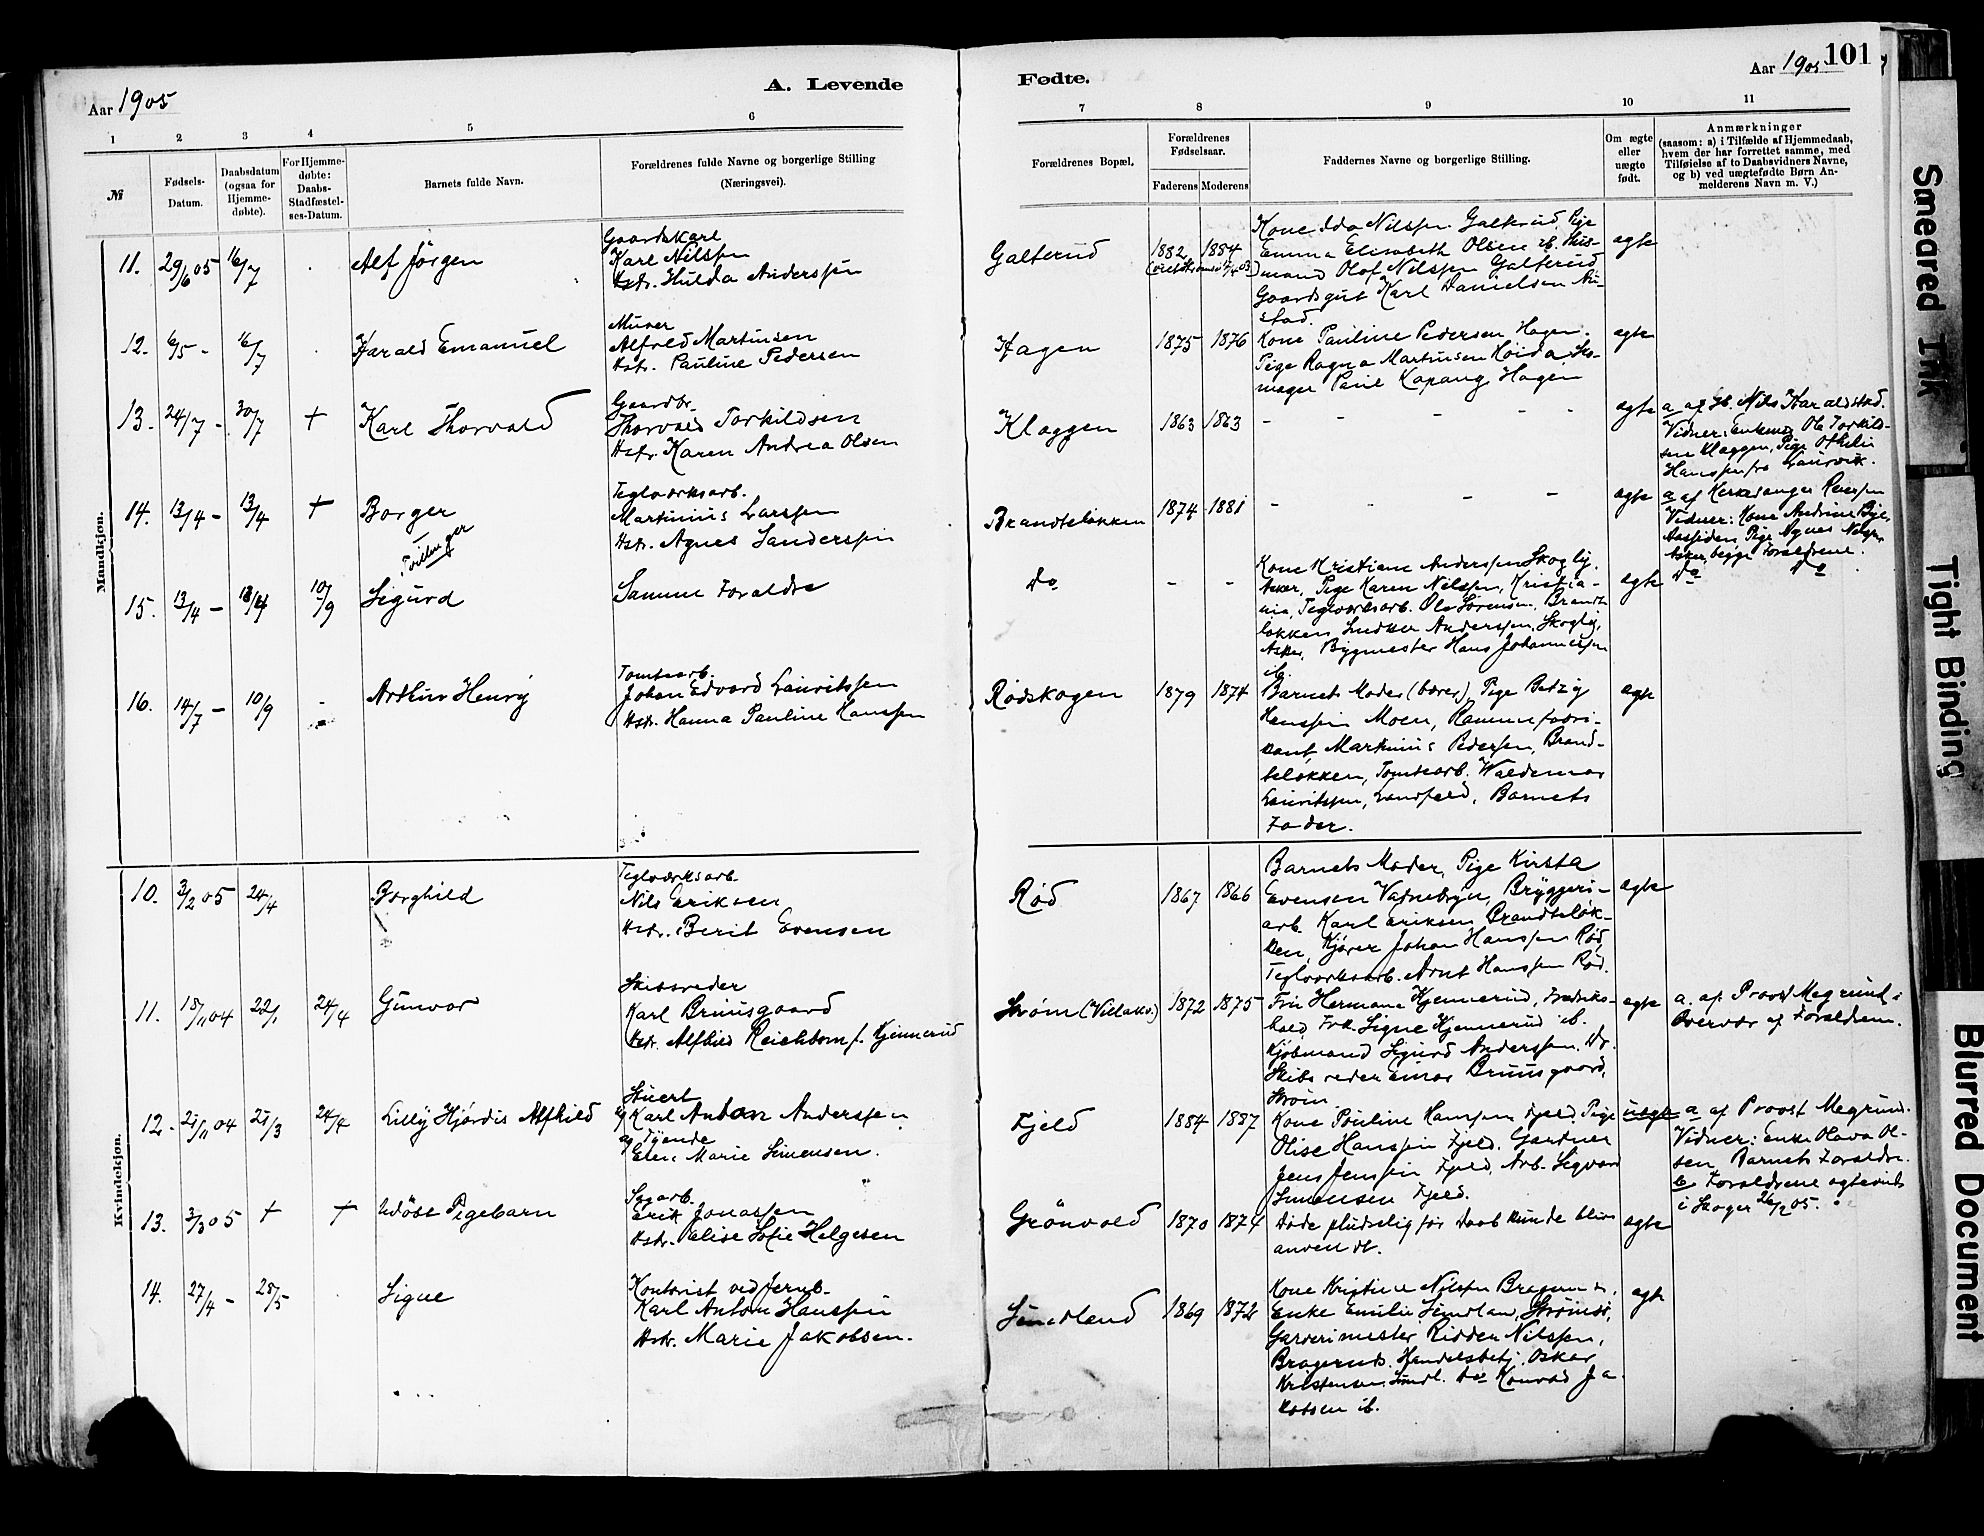 Aar 1905
A. Levende
Fødte.
Aar 1905
101
1 2 3 4 5 6 7 8 9 10 11
№
Fødsels-Datum.
Daabsdatum (ogsaa for Hjemme-døbte).
For Hjemme-døbte: Daabs-Stadfæstel-ses-Datum.
Barnets fulde Navn.
Forældrenes fulde Navne og borgerlige Stilling
(Næringsvei).
Forældrenes Bopæl.
Forældrenes Fødselsaar.
Faderens Moderens
Faddernes Navne og borgerlige Stilling
Om ægte eller uægte født.
Anmærkninger
(saasom: a) i Tilfælde af Hjemmedaab,
hvem der har forrettet samme, med
Tilføielse af to Daabsvidners Navne,
og b) ved uægtefødte Børn An-
melderens Navn m. V.)
Mandkjøn.
11. 29/6 05 16/7 Alf Jörgen
Gaardskarl
Karl Nilssen
Hstr. Hulda Anderssen
Galterud 1882 1884
Kone Ida Nilssen Galterud, Pige
Emma Elisabeth Olsen ib. Hus-
mand Olof Nilssen Galterud
Gaardsgut Karl Danielsen
ægte
12. 6/5 - 16/7 Harald Emanuel
Murer
Alfred Martinsen
Hstr. Pauline Pedersen
Hagen 1875 1876
Kone Pauline Pedersen Hagen.
Pige Ragna Martinsen Höida, Sko-
mager Paul Kopang Hagen
ægte
13. 24/7 - 30/7 + Karl Thorvald
Gaardbr.
Thorvald Torkildsen
Hstr. Karen Andrea Olsen
Klaggen 1863 1863 - - - - -
ægte
a af Gb. Nils Haraldstad.
Vidner: Enkemd. Ole Torkild-
sen Klaggen, Pige Othilie
Hanssen fra Laurvik.
14. 13/4 - 13/4 + Borger
Tvillinger
Teglværksarb.
Martinius Larssen
Hstr. Agnes Sanderssen
Brandteløkken 1874 1881 - - - -
ægte
a af Kirkesanger
Vidner: Kone Andrine Bye,
Pige Agnes
Asker, begge Forældrene.
15. 13/4 - 13/4 10/9 Sigurd
Samme Forældre
Do - -
Kone Kristiane Anderssen Skoglj.
Asker, Pige Karen Nilssen, Kristia-
nia, Teglværksarb. Ole Sörensen, Brandte
løkken, Snedker Anderssen, Skoglj,
Asker, Bygmester Hans Johannessen
ib.
ægte
Do Do
16. 14/7 - 10/9 - Arthur Henry
Tomtearb.
Johan Edvard Lauritssen
Hstr. Hanna Pauline Hanssen
Rødskogen 1879 1874
Barnets Moder (bærer), Pige Betzy
Hanssen Moen, Rammefabri-
kant Martinius Pedersen, Brand-
teløkken, Tomtearb. Waldemar
Lauritssen, Landfald, Barnets
Fader.
ægte
Kvindekjøn.
10. 3/2 05 24/4 Borghild
Teglværksarb.
Nils Eriksen
Hstr. Berit Evensen
Rød 1867 1866
Barnets Moder, Pige Kirsta
Evensen Vatnebryn, Bryggeri-
arb. Karl Eriksen Brandteløk-
ken, Kjører Johan Hanssen Rød,
Teglværksarb. Arnt Hanssen Rød.
ægte
11. 18/11 04 22/1 24/4 Gunvor
Skibsreder
Karl Bruusgaard
Hstr. Alfhild Reichborn f. Kjennerud
Strøm (Villakv.) 1872 1875
Fru Hermana Kjennerud, Fredriks-
hald, Frk. Signe Kjennerud ib.
Kjøbmand Sigurd Anderssen. Do.
Skibsreder Einar Bruusgaard,
Strøm
ægte
a. af Provst Megrund i
Overvær af Forældrene.
12. 21/11 04 21/3 24/4 Lilly Hjørdis Alfhild
Stuert
Karl Anton Anderssen
og Tjende
Marie Simensen.
Fjeld 1884 1887
Kone Pauline Hanssen Fjeld, Pige
Olise Hanssen Fjeld. Gartner
Jens Jenssen Fjeld, Arb. Sigvard
Simensen Fjeld.
uægte
a af Provst Megrund.
Vidner: Enke Olava Ol-
sen, Barnets Forældre.
b Forældrene ægteviede
i Skoger 26/2 05.
13. 3/3 05 + + Udöbt Pigebarn
Sagarb.
Erik Jonassen
Hstr. Elise Sofie Helgesen
Grönvold 1870 1874
Døde pludselig før Daab kunde blive
anvendt.
ægte
14. 27/4 - 28/5 Signe
Kontorist ved Jernb.
Karl Anton Hanssen
Hstr. Marie Jakobsen.
Smedland 1869 1872
Kone Kristine Nilssen Bragernes,
Enke Emilie Strömsö,
Garverimester Nilssen,
Bragernes. Handelsbetj. Oskar
Kristensen, Do Konrad Ja-
kobsen ib.
ægte
Smeared Ink
Tight Binding
Blurred Document